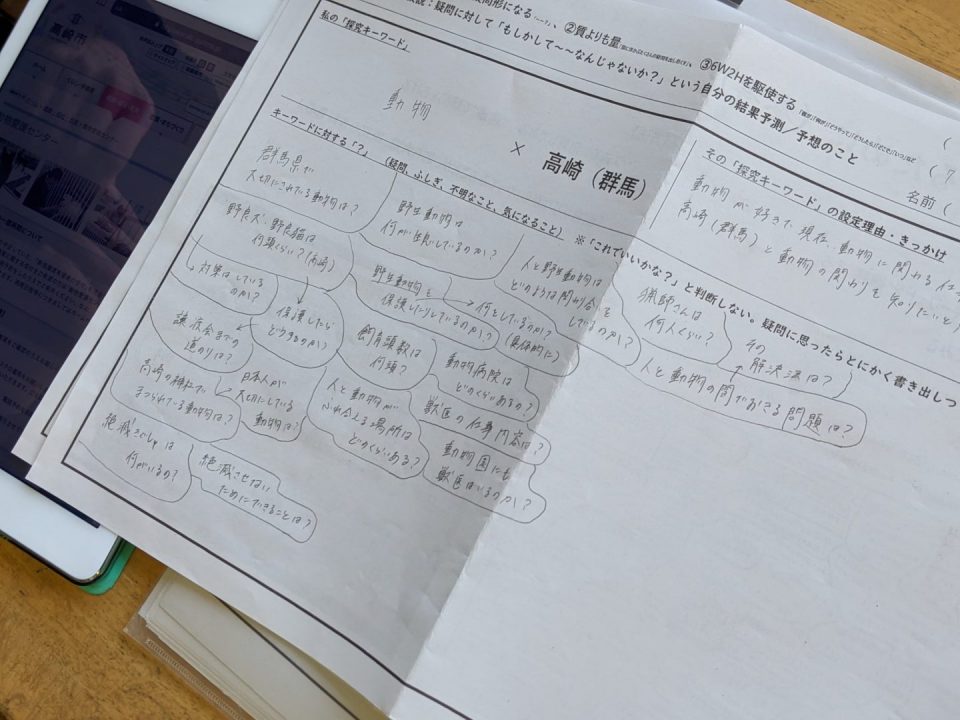 高崎市
②質よりも量
③6W2Hを駆使する
説：疑問に対して「もしかして～～なんじゃないか？」という自分の結果予測／予想のこと
名前（
私の「探究キーワード」
動物
×
高崎（群馬）
その「探究キーワード」の設定理由・きっかけ
動物が好きで、現在、動物に関わる仕
高崎（群馬）と動物の関わりを知りたいと
キーワードに対する「？」（疑問、ふしぎ、不明なこと、気になること）
※「これでいいかな？」と判断しない。疑問に思ったらとにかく書き出しつ
群馬県で
大切にされている動物は？
野良犬、野良猫は
何頭くらい？（高崎）
対策はしている
のか？
保護したら
どうするのか？
譲渡会までの
道のりは？
高崎の神社で
まつられている動物は？
日本人が
大切にしている
動物は？
絶滅きぐしゅは
何がいるの？
絶滅させない
ためにできることは？
野生動物は
何が生息しているのか？
野生動物を
保護したりしているのか？
何をしているのか？
（具体的に）
飼育頭数は
何頭？
動物病院は
どのくらいあるの？
人と動物が
ふれ合える場所は
どのくらいある？
獣医の仕事内容は？
動物園にも
獣医はいるのか？
人と野生動物は
どのような関わり合いを
しているのか？
猟師さんは
何人くらい？
その
解決法は？
人と動物の間でおきる問題は？